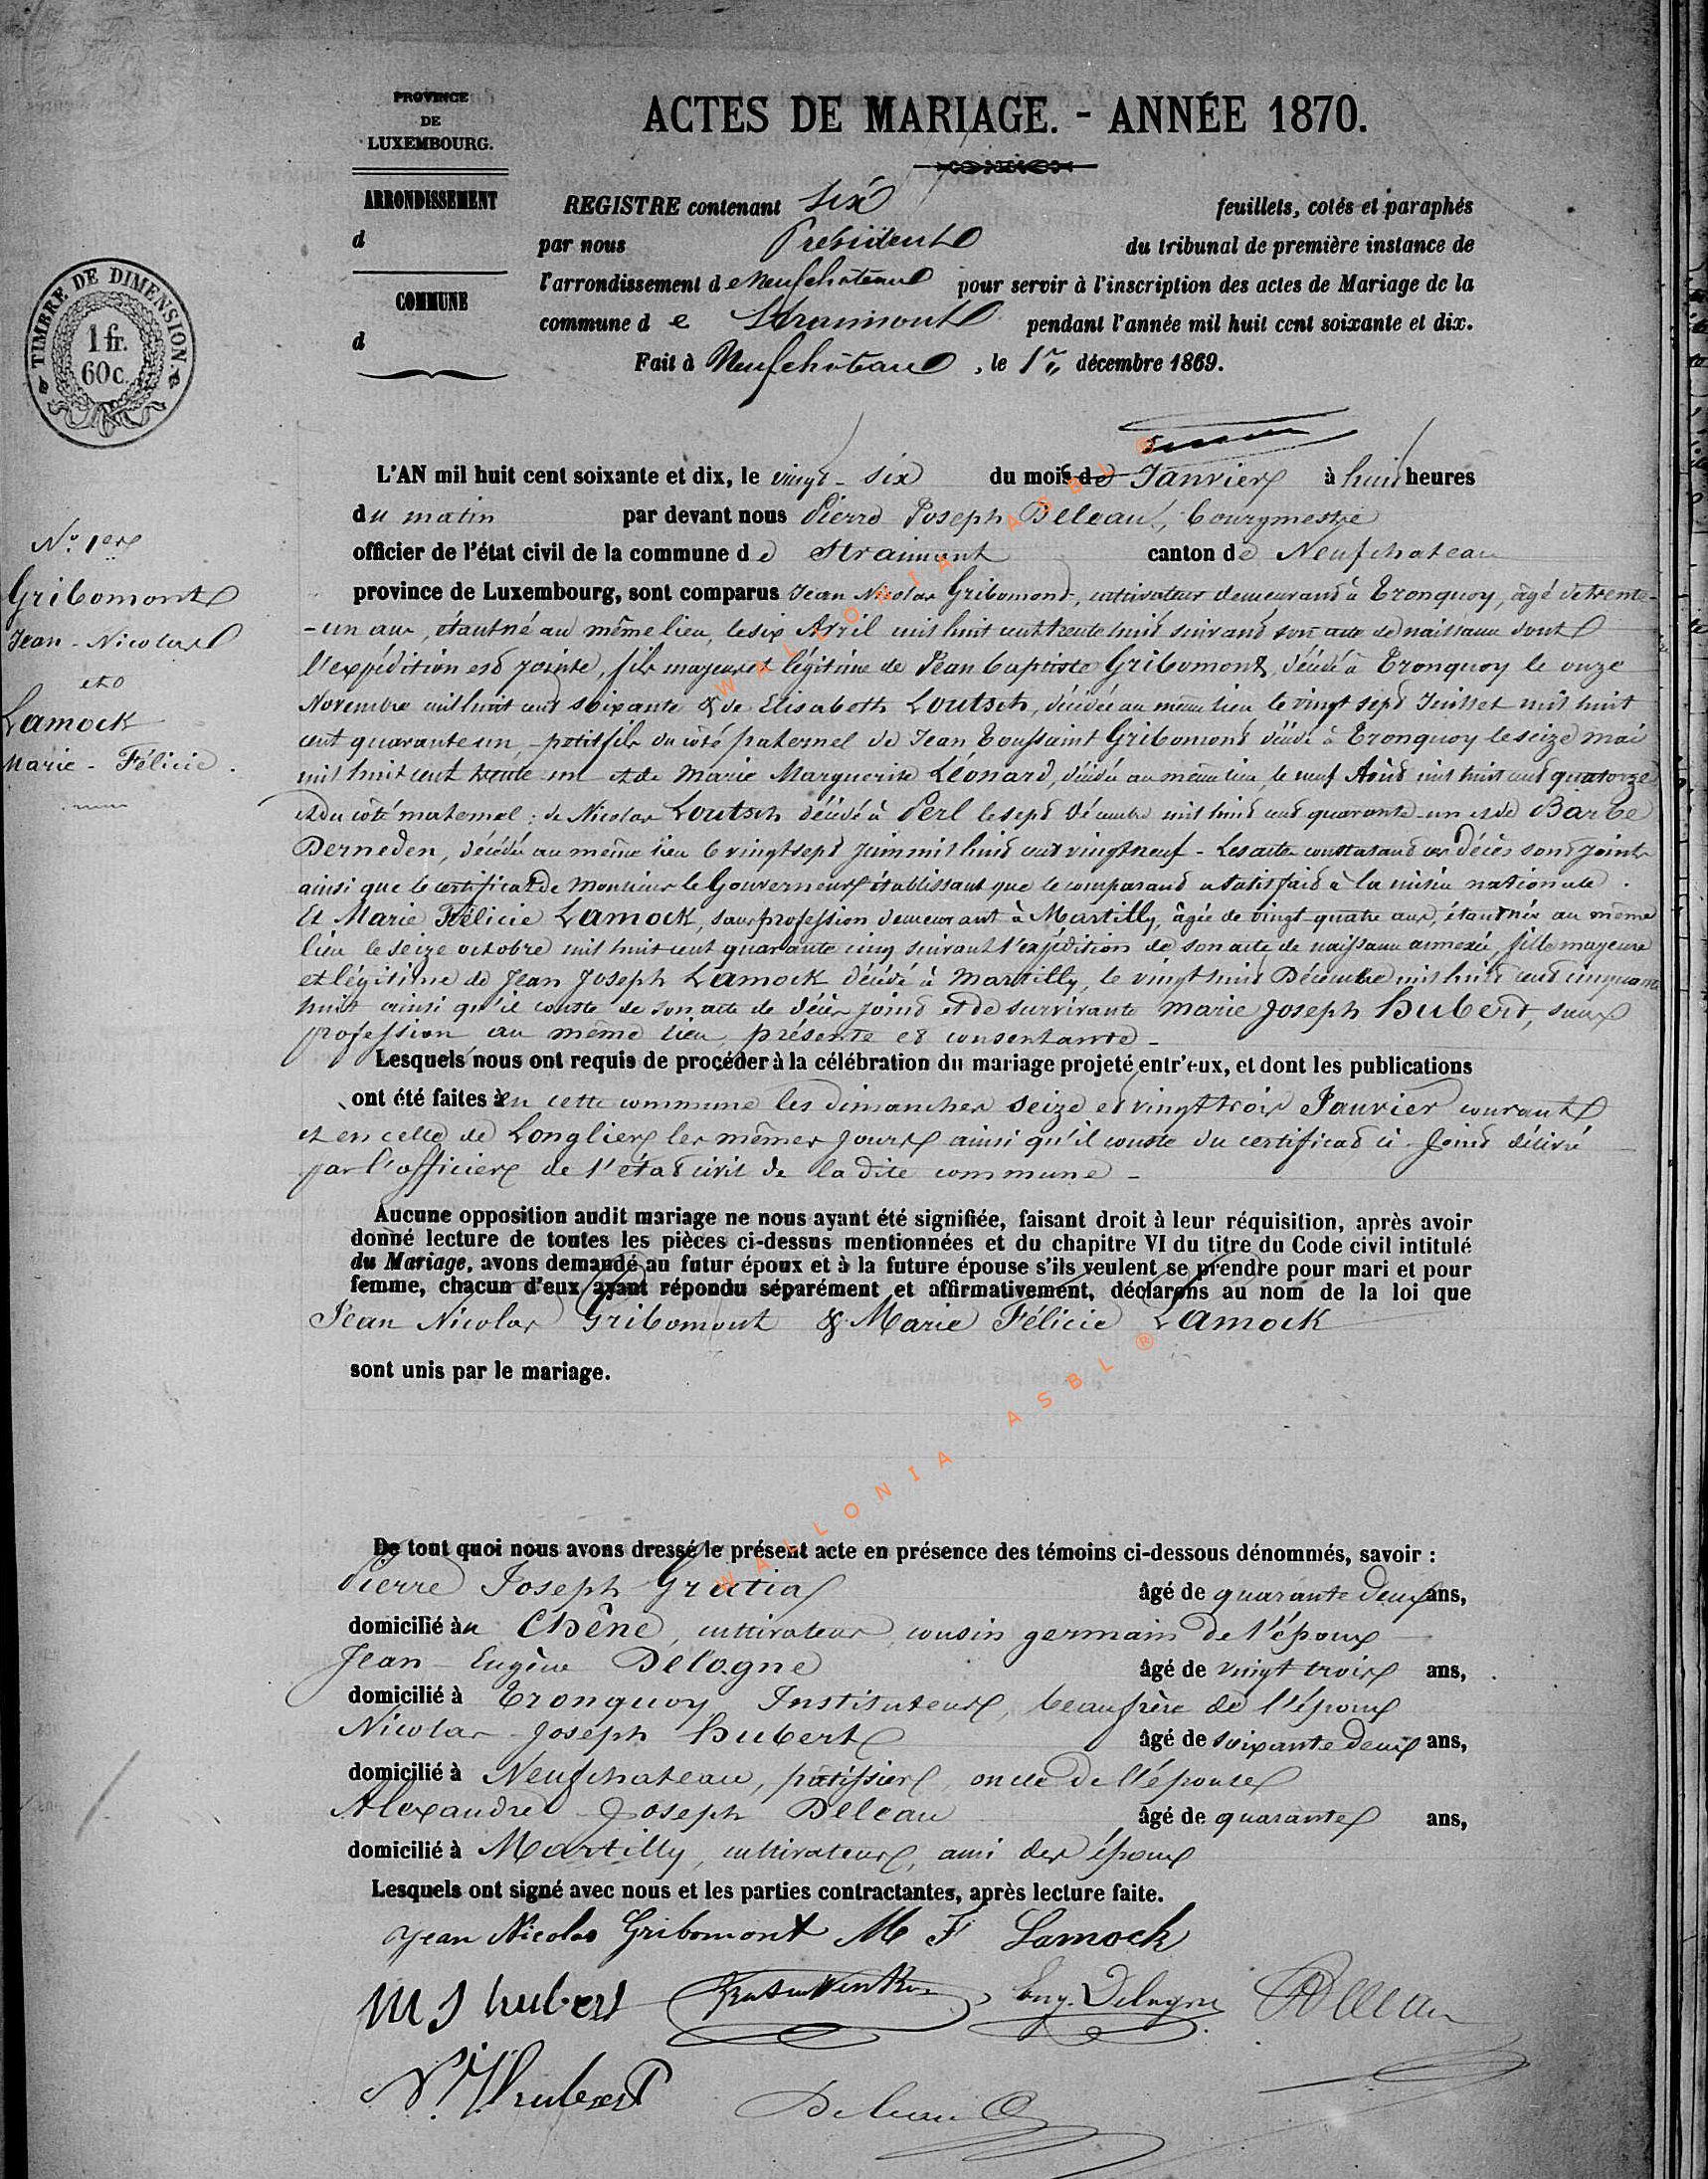 PROVINCE
DE
LUXEMBOURG.
ACTES DE MARIAGE. - ANNÉE 1870.
ARRONDISSEMENT
d
COMMUNE
d
REGISTRE contenant six feuillets, cotés et paraphés
par nous Président du tribunal de première instance de
l'arrondissement de Neufchâteau pour servir à l'inscription des actes de Mariage de la
commune de Straimont pendant l'année mil huit cent soixante et dix.
Fait à Neufchâteau, le 1er décembre 1869.
TIMBRE DE DIMENSION.
1 fr.
60c.
L'AN mil huit cent soixante et dix, le vingt-six du mois de Janvier à huit heures
du matin par devant nous Pierre Joseph Deleau, bourgmestre
officier de l'état civil de la commune de Straimont canton de Neufchateau
N° 1er
Gribomont
Jean-Nicolas
et
Lamock
Marie-Félicie.
province de Luxembourg, sont comparus Jean Nicolas Gribomont, cultivateur demeurant à Tronquoy, âgé de trente-
-un ans, étant né au même lieu, le six Avril mil huit cent trente huit suivant son acte de naissance dont
l'expédition est jointe, fils majeur et légitime de Jean Baptiste Gribomont, décédé à Tronquoy le onze
Novembre mil huit cent soixante & de Elisabeth Loutsch, décédée au même lieu le vingt sept Juillet mil huit
cent quarante un, - petit fils du côté paternel de Jean Toussaint Gribomont décédé à Tronquoy le seize mai
mil huit cent trente un et de Marie Marguerite Léonard, décédée au même lieu, le neuf Août mil huit cent quatorze
et du côté maternel : de Nicolas Loutsch décédé à Perl le sept décembre mil huit cent quarante-un et de Barbe
Derneden, décédée au même lieu le vingt sept Juin mil huit cent vingt neuf - Les actes constatant ces décès sont joints
ainsi que le certificat de Monsieur le Gouverneur établissant que le comparant a satisfait à la milice nationale.
Et Marie Félicie Lamock, sans profession demeurant à Martilly, âgée de vingt-quatre ans, étant née au même
lieu le seize octobre mil huit cent quarante cinq suivant l'expédition de son acte de naissance annexée, fille majeure
et légitime de Jean Joseph Lamock décédé à Martilly, le vingt huit Décembre mil huit cent cinquante
huit ainsi qu'il conste de son acte de décès joint et de survivante Marie Joseph Hubert, sans
profession au même lieu, présente et consentante -
Lesquels nous ont requis de procéder à la célébration du mariage projeté entr'eux, et dont les publications
ont été faites à en cette commune les dimanches seize et vingt trois Janvier courant
et en celle de Longlier les mêmes jours ainsi qu'il conste du certificat ci-joint délivré
par l'officier de l'état civil de la dite commune -
Aucune opposition audit mariage ne nous ayant été signifiée, faisant droit à leur réquisition, après avoir
donné lecture de toutes les pièces ci-dessus mentionnées et du chapitre VI du titre du Code civil intitulé
du Mariage, avons demandé au futur époux et à la future épouse s'ils veulent se prendre pour mari et pour
femme, chacun d'eux ayant répondu séparément et affirmativement, déclarons au nom de la loi que
Jean Nicolas Gribomont & Marie Félicie Lamock
sont unis par le mariage.
De tout quoi nous avons dressé le présent acte en présence des témoins ci-dessous dénommés, savoir :
Pierre Joseph Gratia âgé de quarante deux ans,
domicilié à Chêne, cultivateur, cousin germain de l'époux
Jean Eugène Delogne âgé de vingt trois ans,
domicilié à Tronquoy Instituteur, beaufrère de l'époux
Nicolas Joseph Hubert âgé de soixante deux ans,
domicilié à Neufchateau, pâtissier, oncle de l'épouse
Alexandre Joseph Deleau âgé de quarante ans,
domicilié à Martilly, cultivateur, ami des époux
Lesquels ont signé avec nous et les parties contractantes, après lecture faite.
Jean Nicolas Gribomont M F Lamock
M J hubert Eug. Delogne Deleau
N. J. Hubert Deleau
WALLONIA ASBL ®
WALLONIA ASBL ®